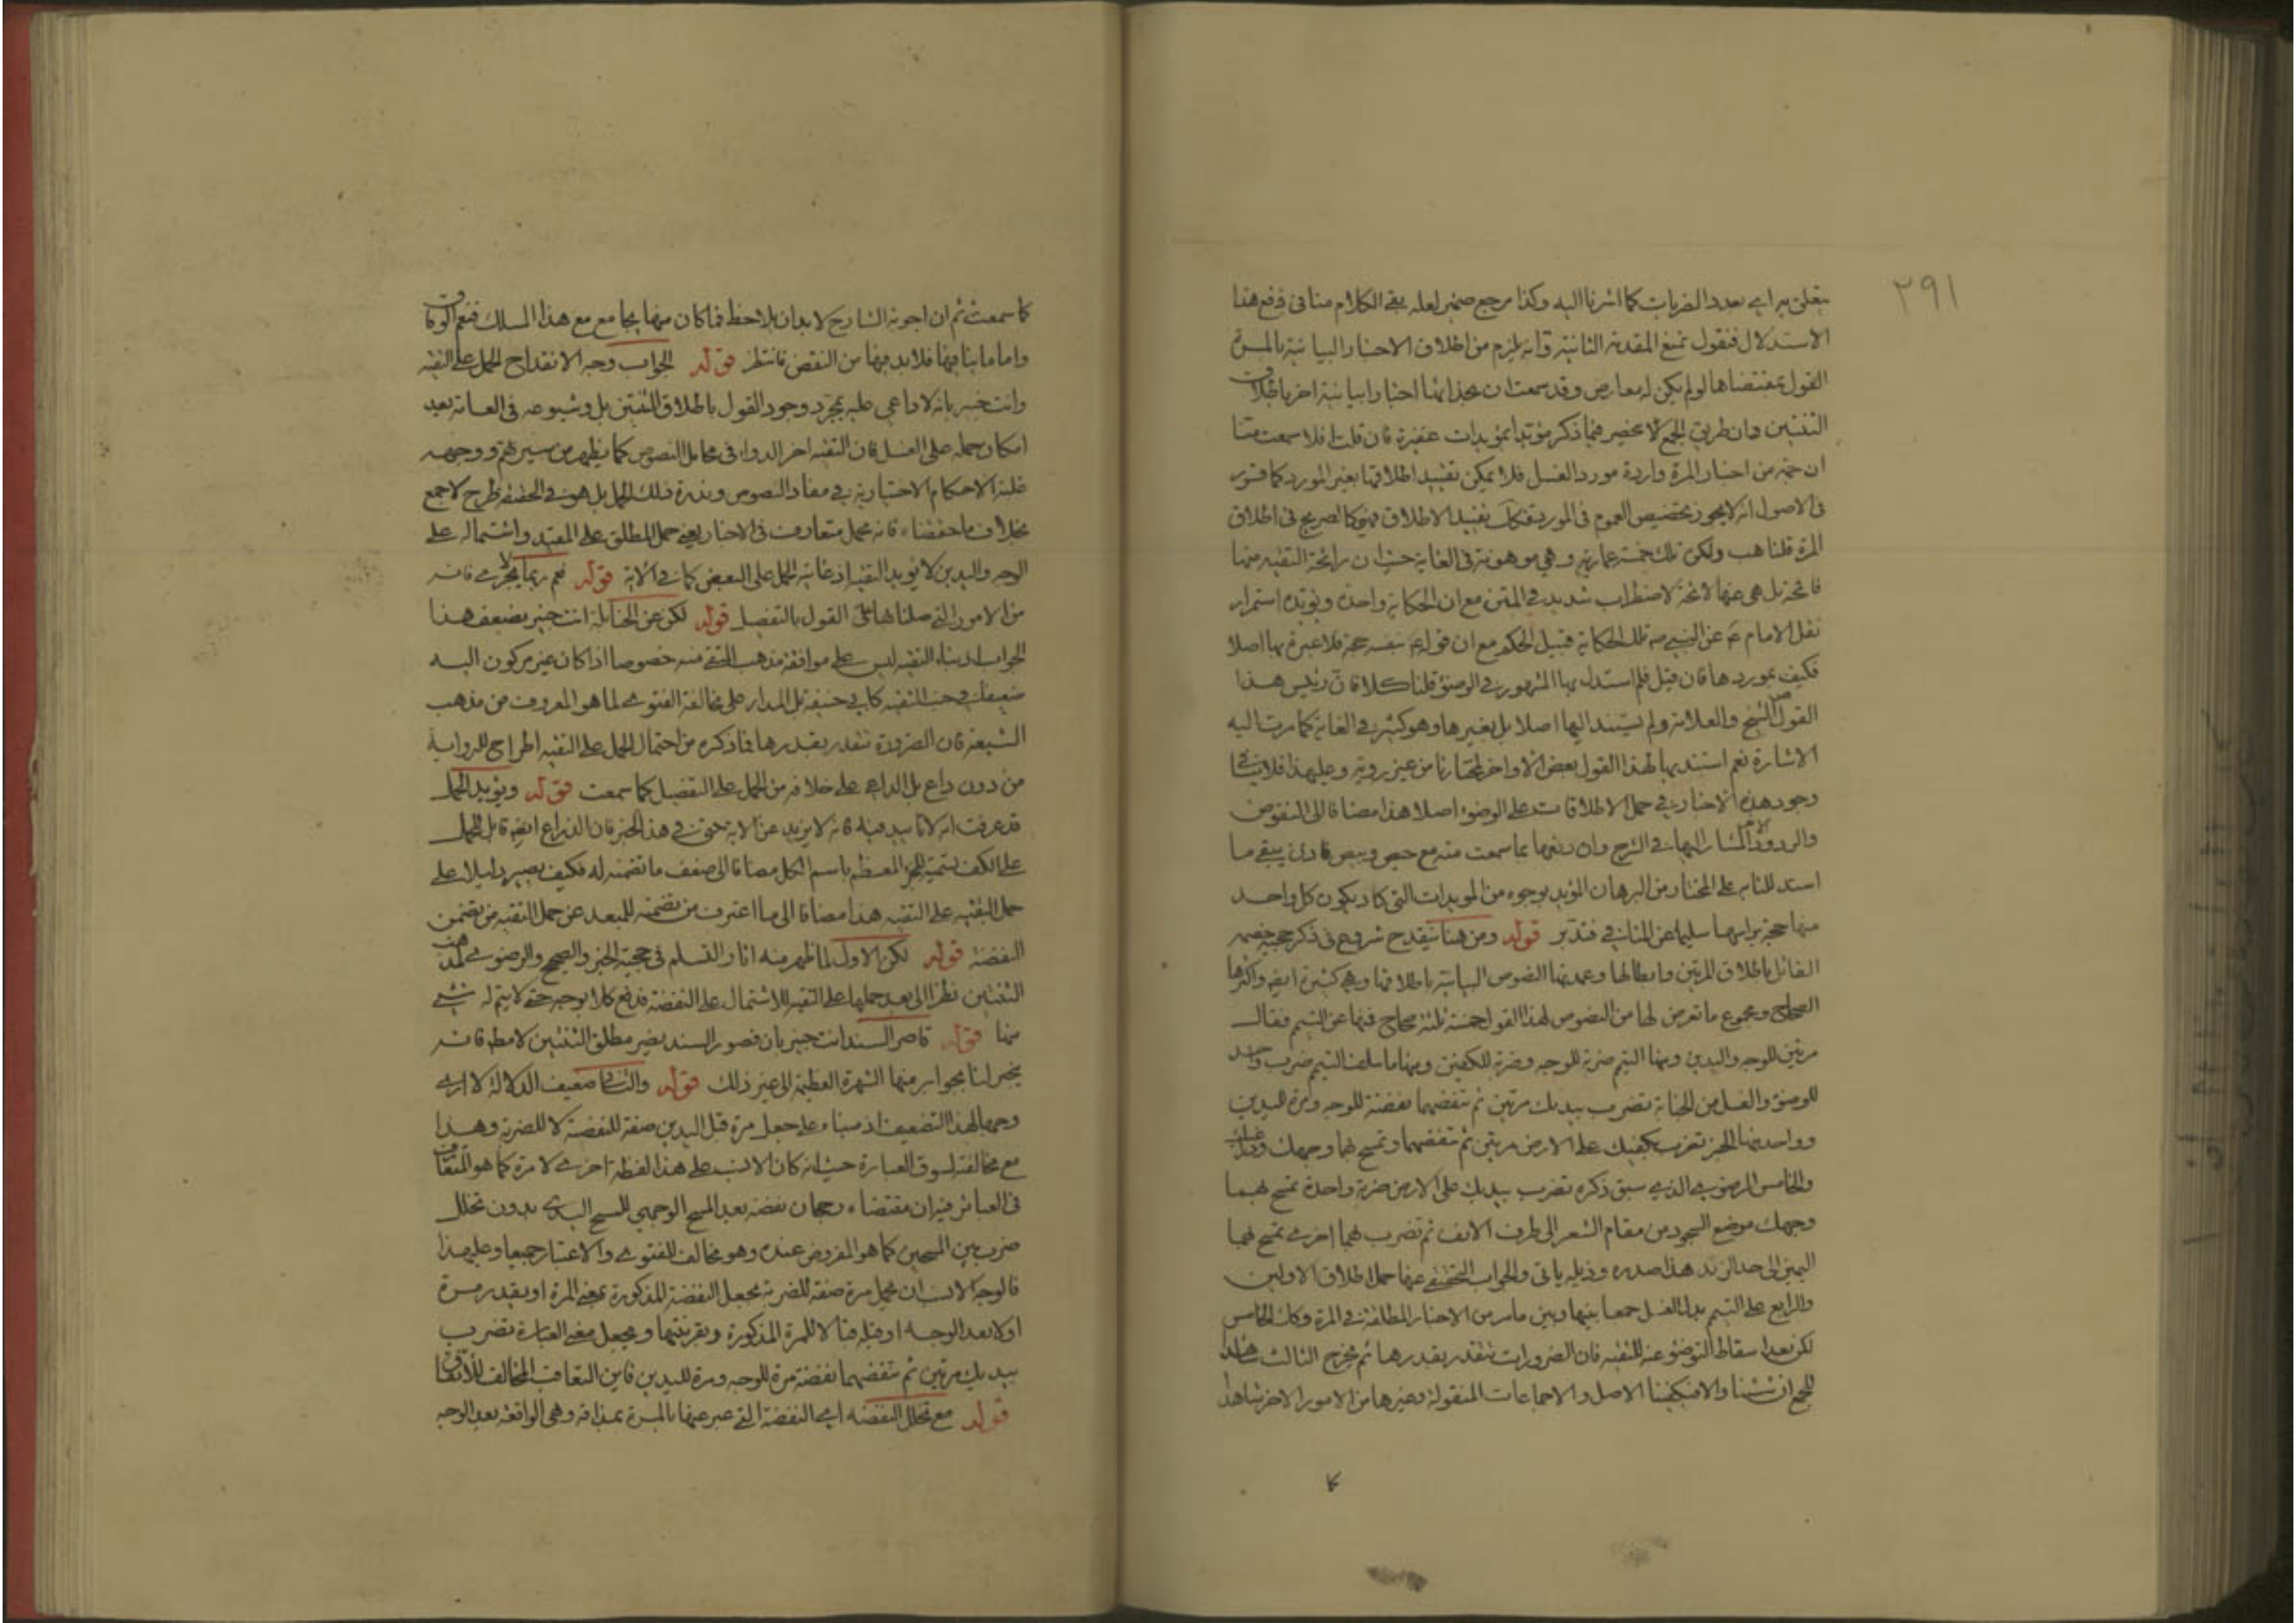 ٢٩١
يتعلق به اي بعدد الضربات كما اشرنا اليه وكذا مرجع ضمير لعله بقي الكلام منا في دفع هذا
الاستدلال فنقول نمنع المقدمة الثانية وانه يلزم من اطلاق الاخبار البيانية بالمرة
القول بمقتضاها لو لم يكن له معارض وقد سمعت ان بحذائها اخبارا بيانية اخر باطلاق
الثنتين وان طريق الجمع لا يخصر فيما ذكر مؤيدا بمؤيدات عفيرة فان قلت افلا سمعت منا
ان خمسة من اخبار المرة واردة مورد الغسل فلا يمكن تقييد اطلاقها بغير المورد كما قرر
في الاصول انه لا يجوز تخصيص العموم في المورد فكك تقييد الاطلاق فهو كالصريح في اطلاق
المرة قلنا هب ولكن تلك خمسة عمارية وهي موهونة في الغاية حيث ان رائحة التقية منها
فائحة بل هي عنها لائحة لاضطراب شديد في المتن مع ان الحكاية واحدة ويؤيده استمرار
نقل الامام ع عن النبي ص تلك الحكاية قبيل الحكم مع ان قوله ع بنفسه حجة فلا عبرة بها اصلا
فكيف بموردها فان قيل فلم استدل بها المشهور في الوضوء قلنا كلا فان رئيس هذا
القول الشيخ والعلامة ولم يستند اليها اصلا بل بغيرها وهو كثير في الغاية كما مرت اليه
الاشارة نعم استند بها لهذا القول بعض الاواخر اختيارنا من غير روية وعليهذا فلا ينافي
وجود هذه الاخبار في حمل الاطلاقات على الوضوء اصلا هذا مضافا الى النقوض
والردود المشار اليها في الشرح وان دفعها بما سمعت منه مع حيص وبيص فاذن يبقى ما
استدللنا به على المختار من البرهان المؤيد بوجوه من المؤيدات التي كاد يكون كل واحد
منها حجة براسها سليما عن المنافي فتدبر قوله ومن هنا ينقدح شروع في ذكر حجة خصمه
القائل باطلاق المرتين وابطالها وعمدتها النصوص البيانية باطلاقها وهي كثيرة ايضا واكثرها
الصحاح ومجموع ما تعرض لها من النصوص لهذا القول خمسة ثلثة صحاح فيها عن التيمم فقال
مرتين للوجه واليدين ومنها التيمم ضربة للوجه وضربة للكفين ومنها ما سلف التيمم ضرب واحد
للوضوء والغسل من الجنابة تضرب بيديك مرتين ثم تنفضهما نفضة للوجه ومرة لليدين
وواحد منها الخبر تضرب بكفيك على الارض مرتين ثم تنفضهما وتمسح بهما وجهك وذراعيك
والخامس الرضوي الذي سبق ذكره تضرب بيديك على الارض ضربة واحدة تمسح بهما
وجهك موضع السجود من مقام الشعر الى طرف الانف ثم تضرب بهما اخرى تمسح بهما
اليمين الى حد الزند هذا صدره وذيله ياتي والجواب التحقيقي عنها حمل اطلاق الاولين
والرابع على التيمم بدل الغسل جمعا بينها وبين ما مر من الاخبار المطلقة في المرة وكذا الخامس
لكن بعد اسقاط التوضوء عنه للتقية فان الضرورات تتقدر بقدرها ثم مخرج الثالث شاهدا
للجمع ان شئنا والا فيكفينا الاصل والاجماعات المنقولة وغيرها من الامور الاخر شاهدا
كا
كما سمعت ثم ان اجوبة الشارح لا بد ان يلاحظ فما كان منها يجامع مع هذا المسلك فنعم الوفاق
واما ما ينافيها فلا بد فيها من النقض فانتظر قوله الجواب وجه الانقداح الحمل على التقية
وانت خبير بانه لا داعي عليه بمجرد وجود القول باطلاق الثنتين بل وشيوعه في العامة بعد
امكان حمله على الغسل فان التقية اخر الدواء في محامل النصوص كما يظهر من سيرتهم ووجهه
غلبة الاحكام الاختيارية في مفاد النصوص وندرة ذلك الحمل بل هو في الحقيقة طرح لا جمع
بخلاف ما حققناه فانه محمل متعارف في الاخبار يعني حمل المطلق على المقيد واشتماله على
الوجه واليدين لا يؤيد التقية اذ غايته الحمل على البعض كما في الاية قوله نعم ربما يجزي فانه
من الامور التي حملناها على القول بالتفصيل قوله لكن عن الحنابلة انت خبير بضعف هذا
الجواب اذ بناء التقية ليس على موافقة مذهب المتقى منه خصوصا اذا كان غير مركون اليه
ضعيفا في جنب التقية كابي حنيفة بل المدار على مخالفة الفتوى لما هو المعروف من مذهب
الشيعة فان الضرورة تتقدر بقدرها فما ذكره من احتمال الحمل على التقية اطراح للرواية
من دون داع بل الداعي على خلافه من الحمل على التفصيل كما سمعت قوله ويؤيد الحمل
قد عرفت انه لا تاييد فيه فانه لا يزيد عن الاية حتى في هذا الخبر فان الذراع ايضا قابل للحمل
على الكف بتسمية الجزء المعظم باسم الكل مضافا الى ضعف ما تضمنه له فكيف يصير دليلا على
حمل البقية على التقية هذا مضافا الى ما اعترف من تضمنه للمبعد عن حمل التقية من تضمن
النفضة قوله لكن الاول لما ظهر منه اثار التسلم في حجية الخبر والصحيح والرضوي لمذهب
الثنتين نظرا الى بعد حملها على التقية للاشتمال على النفضة فدفع كلا بوجه حتى لا يتم له شيء
منها قوله قاصر السند انت خبير بان قصور السند يضير مطلق الثنتين لا مطلقا فانه
ينجبر لنا بجوابر منها الشهرة العظيمة الى غير ذلك قوله والثاني ضعيف الدلالة لا ارى
وجها لهذا التضعيف اذ مبناه على جعل مرة قبل اليدين صفة للنفضة لا للضربة وهذا
مع مخالفته لسوق العبارة حيث انه كان الانسب على هذا لفظة اخرى لا مرة كما هو المتعارف
في العبائر فيه ان مقتضاه رجحان نفضة بعد المسح الوجهي للمسح اليدي بدون تخلل
ضرب بين المسحين كما هو المفروض عنده وهو مخالف للفتوى والاعتبار جميعا وعليهذا
فالوجه الانسب ان يحمل مرة صفة للضربة بجعل النفضة المذكورة بمعنى المرة او يقدر مرة
اولا بعد الوجه او قبله قبالا للمرة المذكورة وبقرينتها ويجعل معنى العبارة تضرب
بيديك مرتين ثم تنفضهما نفضة مرة للوجه ومرة لليدين فاين التعاقب المخالف للاتفاق
قوله مع تخلل النفضة اي النفضة التي عبر عنها بالمرة بمذاقه وهي الواقعة بعد الوجه